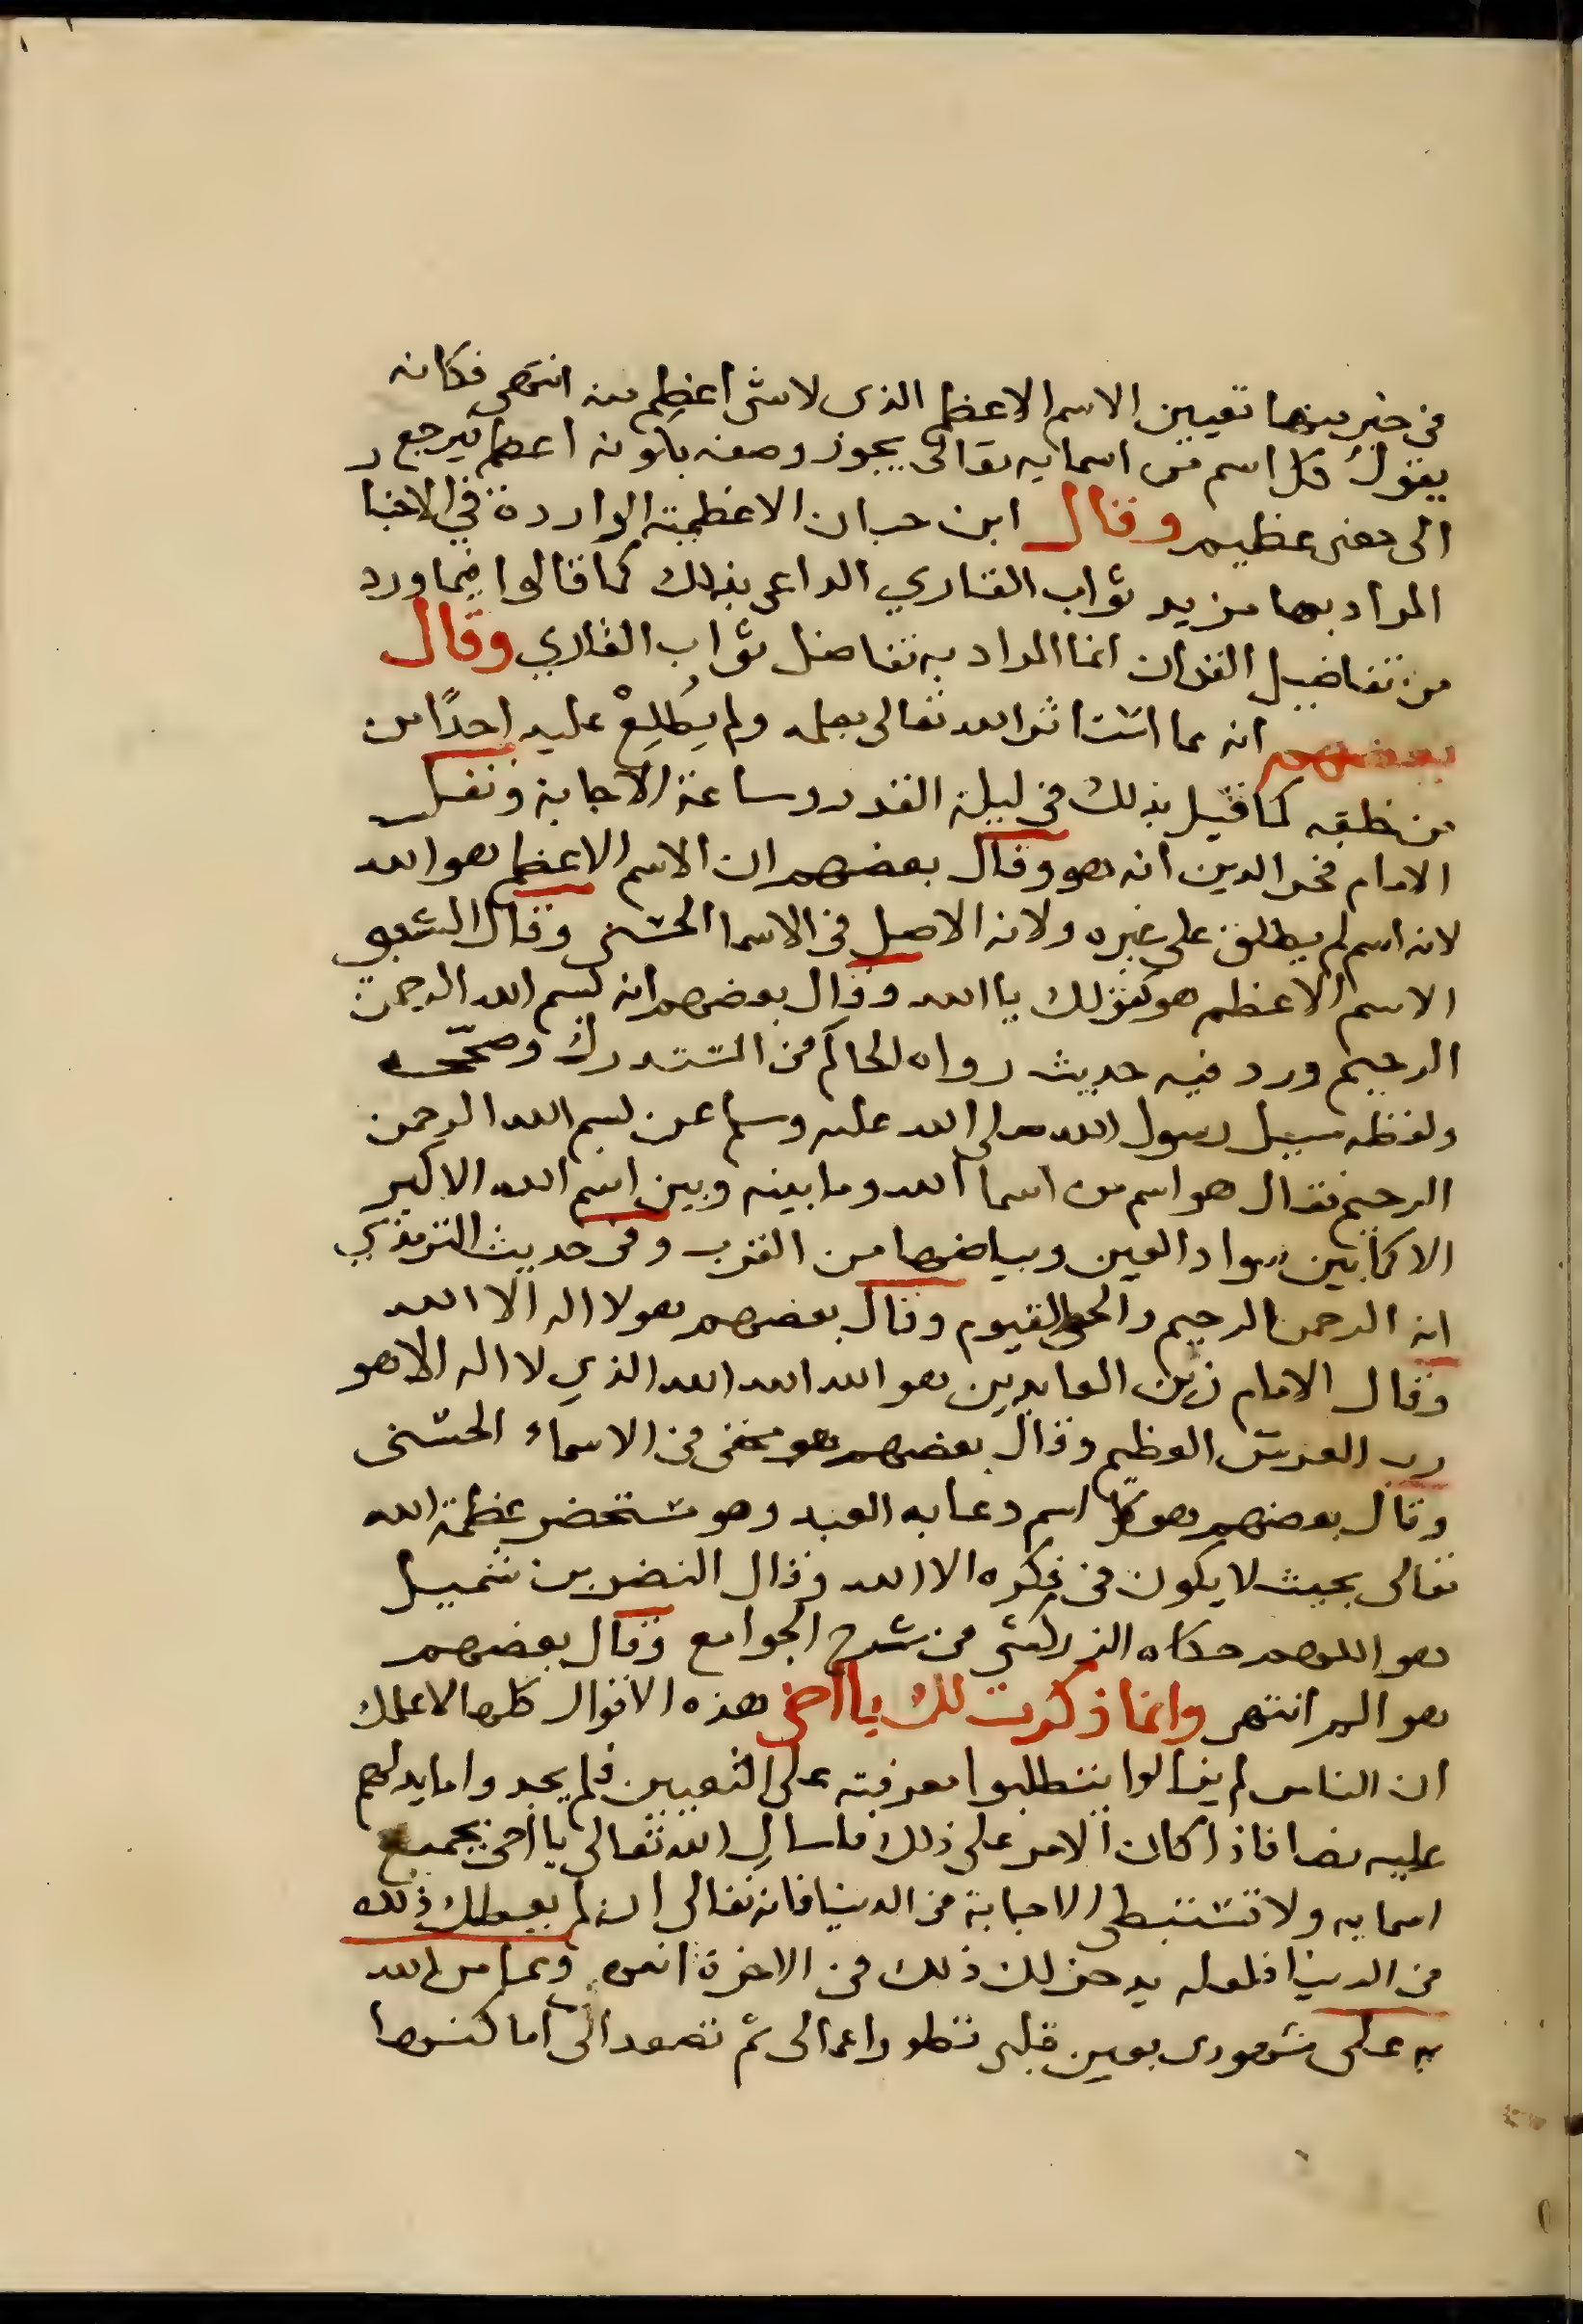 في خبر منها تعيين الاسم الاعظم الذى لاشى اعظم منه انتهى فكانه
يقول كل اسم من اسمايه تعالى يجوز وصفه بكونه اعظم فيرجع ر
الى معنى عظيم وقال ابن حبان الاعظمية الواردة في الاخبا
المراد بها مزيد ثواب القاري الداعى بذلك كما قالوا فيما ورد
من تفاضيل القران انما المراد به تفاضل ثواب القاري وقال
بعضهم انه مما استاثر الله تعالى بعلمه ولم يُطْلِعْ عليه احدًا من
من خلقه كما قيل بذلك في ليلة القدر وساعة الاجابة ونقل
الامام فخر الدين انه هو وقال بعضهم ان الاسم الاعظم هو الله
لانه اسم لم يطلق على غيره ولانه الاصل في الاسما الحسنى وقال الشعبي
الاسم الاعظم هو كقولك يا الله وقال بعضهم انه بسم الله الرحمن
الرحيم ورد فيه حديث رواه الحاكم في المستدرك وصححه
ولفظه سيل رسول الله صلى الله عليه وسلم عن بسم الله الرحمن
الرحيم فقال هو اسم من اسما الله وما بينه وبين اسم الله الاكبر
الا كما بين سواد العين وبياضها من القرب وفى حديث الترمذي
انه الرحمن الرحيم والحى القيوم وقال بعضهم هو لا اله الا الله
وقال الامام زين العابدين هو الله الله الله الذي لا اله الا هو
رب العرش العظيم وقال بعضهم هو مخفى في الاسماء الحسنى
وقال بعضهم هو كل اسم دعا به العبد وهو مستحضر عظمة الله
تعالى بحيث لا يكون في فكره الا الله وقال النضر بن شميل
هو اللهم حكاه الزركشي في شرح الجوامع وقال بعضهم
هو الم انتهى وانما ذكرت لك يا اخى هذه الاقوال كلها لاعلمك
ان الناس لم يزالوا يتطلبوا معرفته على التعيين فلم يجدوا ما يدلهم
عليه نصا فاذا كان الامر على ذلك فاسال الله تعالى يا اخى بجميع
اسمايه ولا تستبطى الاجابة في الدنيا فانه تعالى ان لم يعطك ذلك
في الدنيا فلعله يدخر لك ذلك في الاخرة انتهى ومما من الله
به على شهودى بعين قلبى تطور اعمالى ثم تصعد الى اماكنها